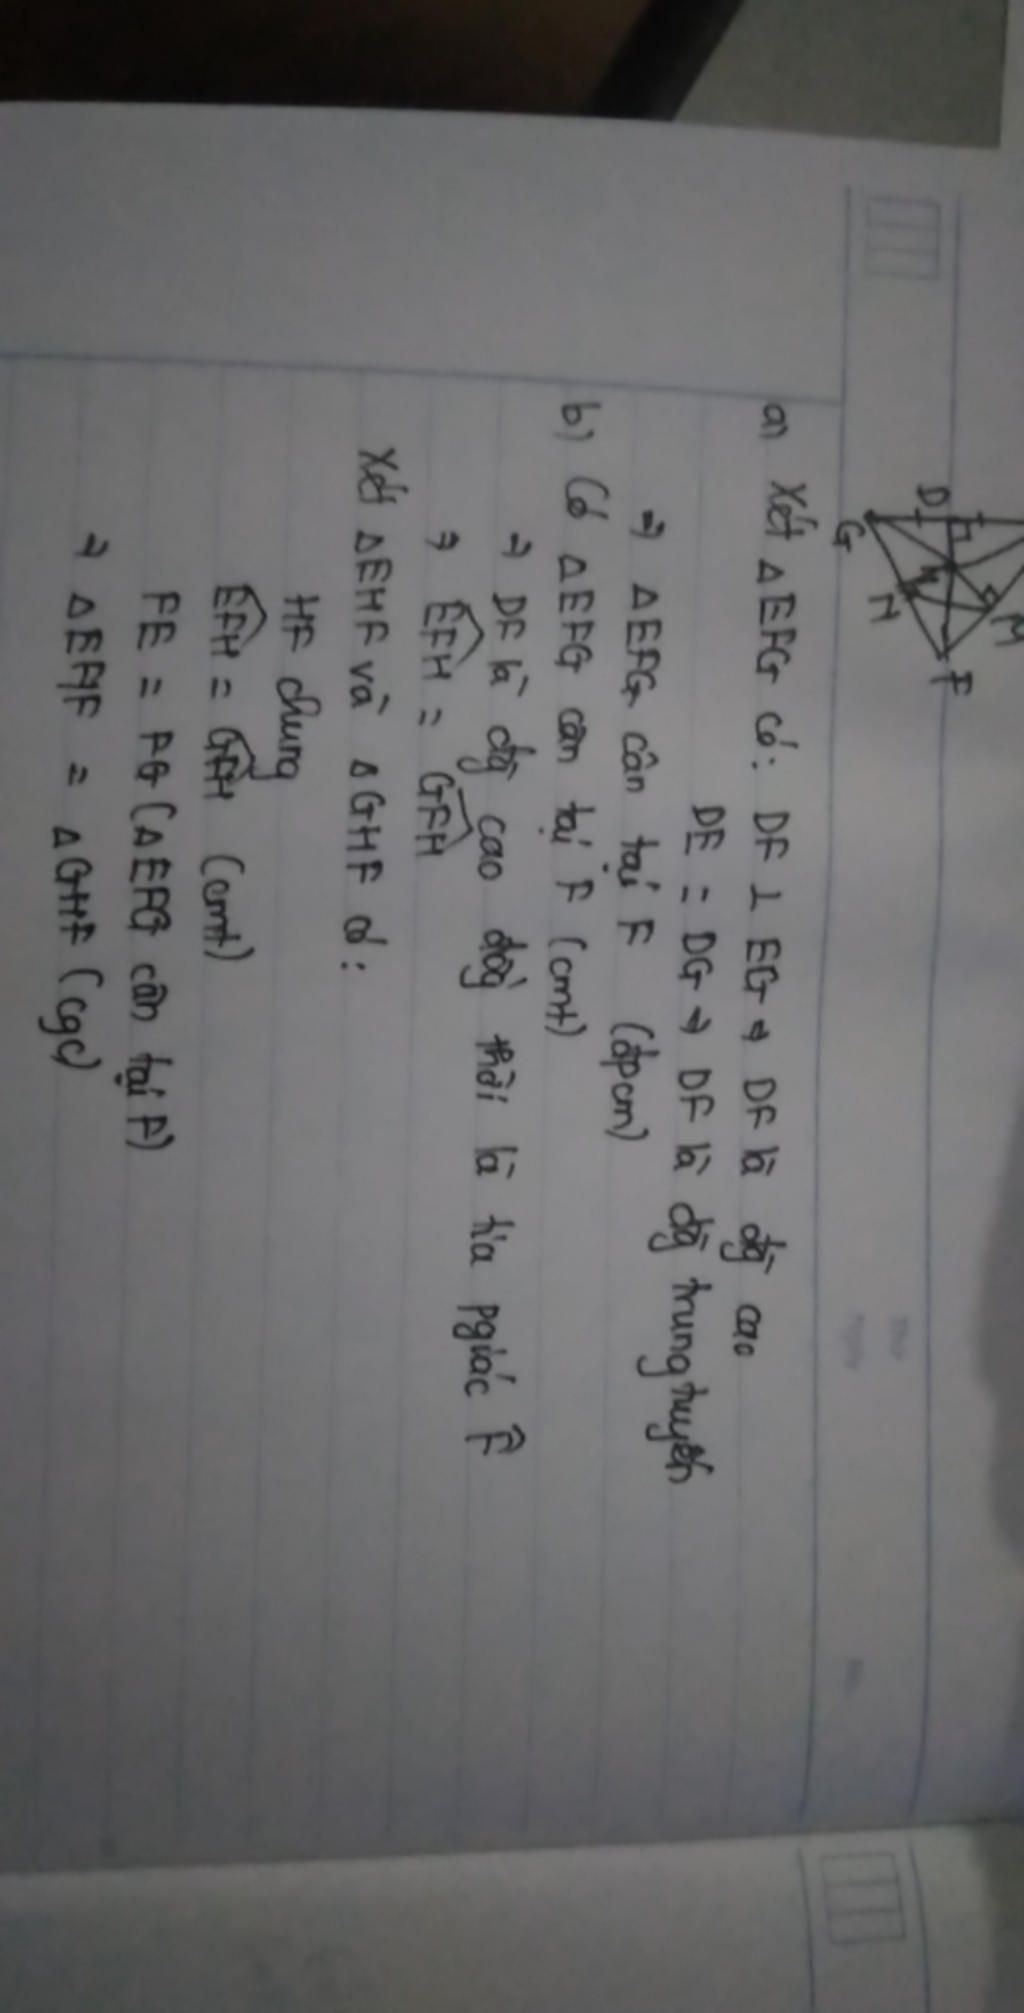 D
G
H
N
M
F
a) Xét ΔEFG có: DF ⊥ EG → DF là đg cao
DE = DG → DF là đg trung tuyến
⇒ ΔEFG cân tại F (đpcm)
b) Có ΔEFG cân tại F (cmt)
→ DF là đg cao đồg thời là tia pgiác F̂
→ EFĤ = GFĤ
Xét ΔEHF và ΔGHF có:
HF chung
EFĤ = GFĤ (cmt)
FE = FG (ΔEFG cân tại F)
→ ΔEHF = ΔGHF (cgc)